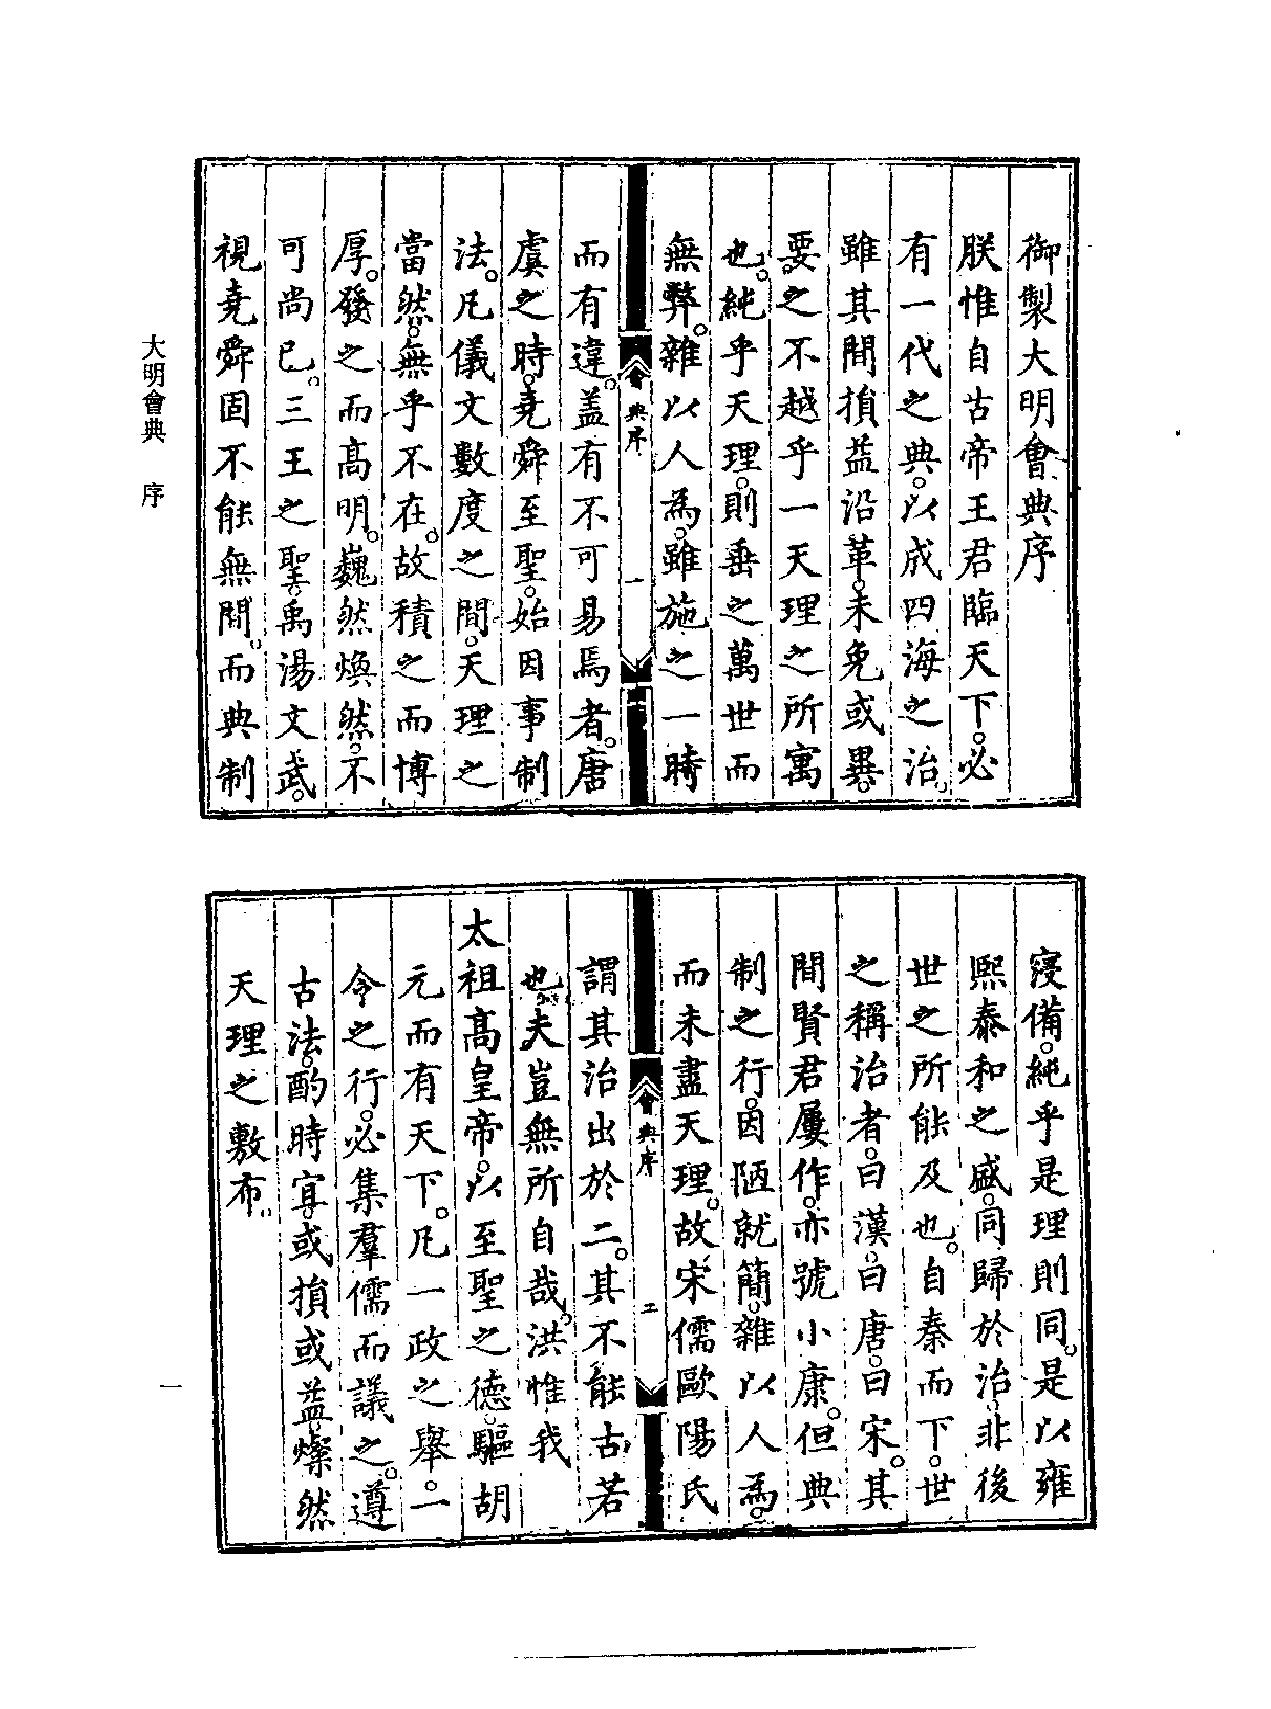 御製大明會典序
朕惟自古帝王君臨天下。必
有一代之典。以成四海之治。
雖其間損益沿革。未免或異。
要之不越乎一天理之所寓
也。純乎天理。則垂之萬世而
無弊。雜以人為。雖施之一時
會典序
一
而有違。盖有不可易焉者。唐
虞之時。堯舜至聖。始因事制
法。凡儀文數度之間。天理之
當然。無乎不在。故積之而博
厚。發之而高明。巍然煥然。不
可尚已。三王之聖。禹湯文武。
視堯舜固不能無間。而典制
大明會典 序
寖備。純乎是理則同。是以雍
熙泰和之盛。同歸於治。非後
世之所能及也。自秦而下。世
之稱治者。曰漢。曰唐。曰宋。其
間賢君屢作。亦號小康。但典
制之行。因陋就簡。雜以人為。
而未盡天理。故宋儒歐陽氏
會典序
二
謂其治出於二。其不能古若
也。夫豈無所自哉。洪惟我
太祖高皇帝。以至聖之德。驅胡
元而有天下。凡一政之舉。一
令之行。必集羣儒而議之。遵
古法。酌時宜。或損或益。燦然
天理之敷布。
一